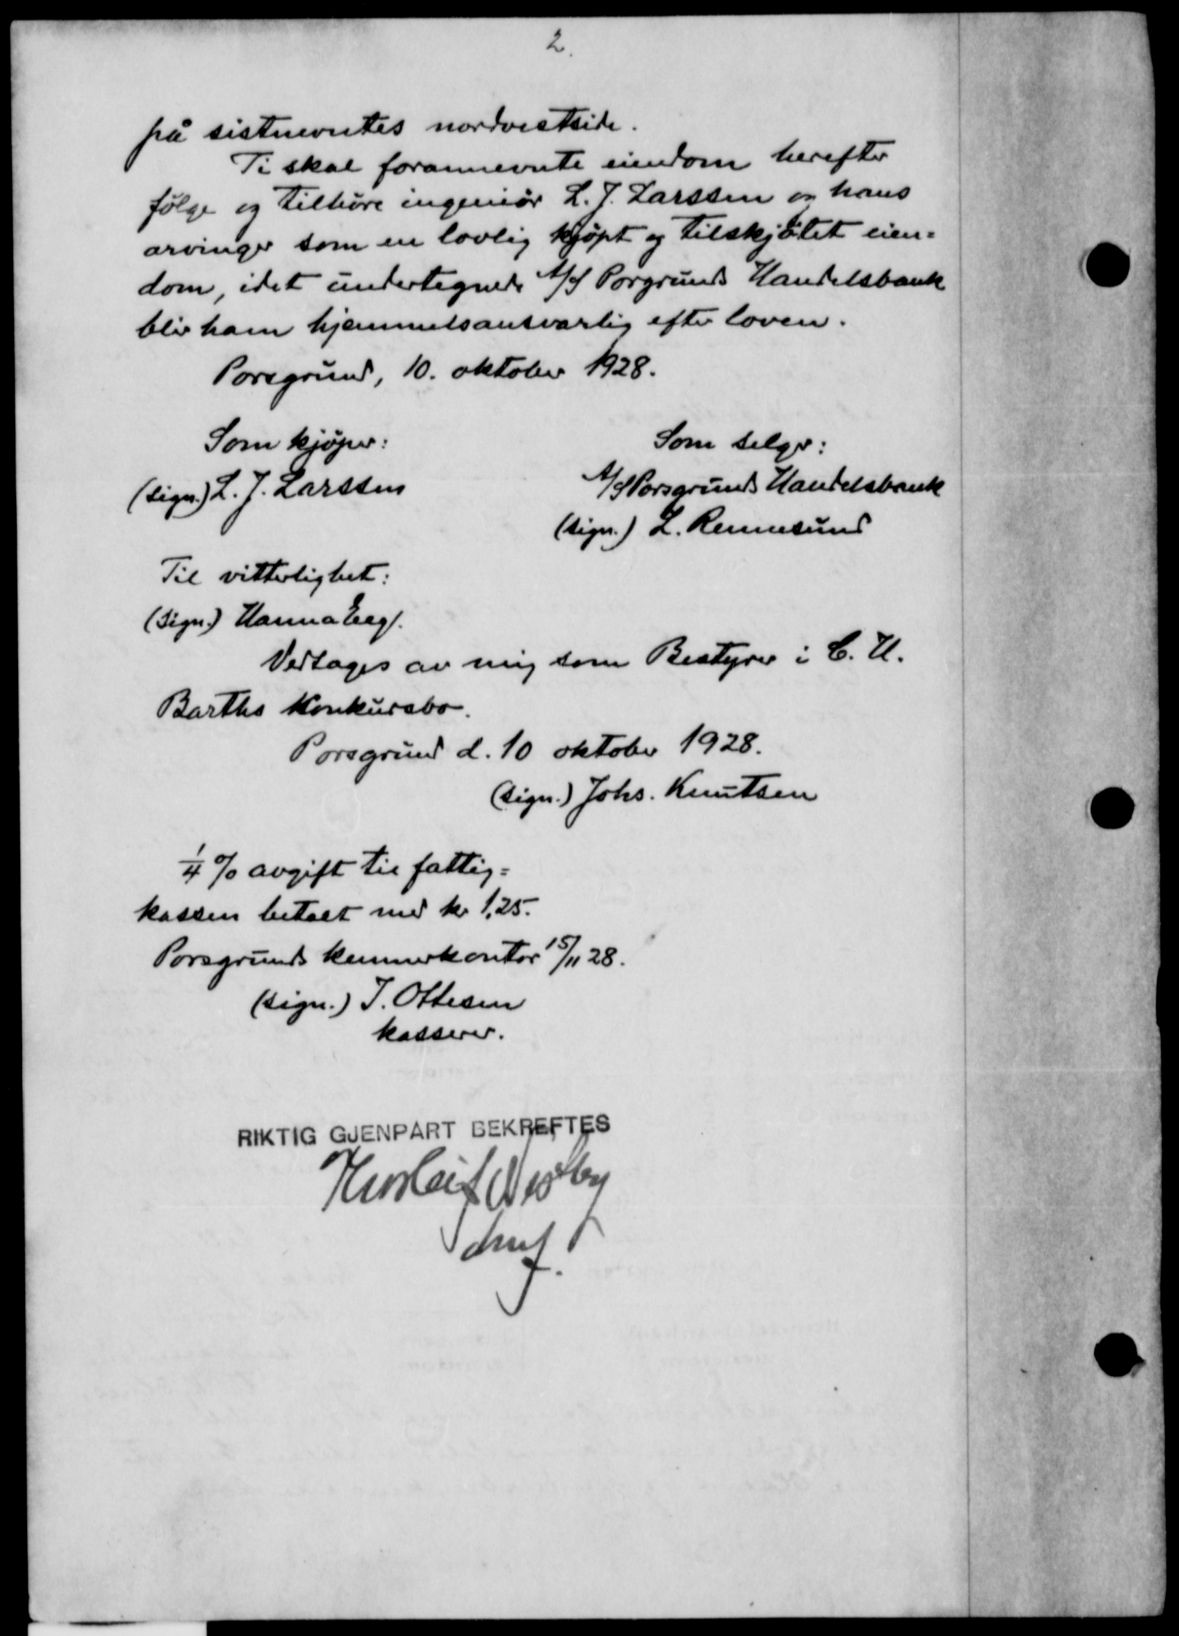 2.
på sistnevntes nordvestside.
Ti skal forannevnte eiendom herefter
følge og tilhøre ingeniør L. J. Larssen og hans
arvinger som en lovlig kjøpt og tilskjøtet eien=
dom, idet undertegnede A/S Porgrunds Handelsbank
blir ham hjemmelsansvarlig efter loven.
Porsgrund, 10. oktober 1928.
Som kjøper: Som selger:
(sign.) L. J. Larssen A/S Porsgrunds Handelsbank
(sign.) L. Rennesund
Til vitterlighet:
(sign.) Hanna Eeg/.
Vedtages av mig som Bestyrer i C. H.
Barths Konkursbo.
Porsgrund d. 10 oktober 1928.
(sign.) Johs. Knutsen
1/4 % avgift til fattig=
kassen betalt med kr. 1,25.
Porsgrunds kemnerkontor 15/11 28.
(sign.) J. Ottesen
kasserer.
RIKTIG GJENPART BEKREFTES